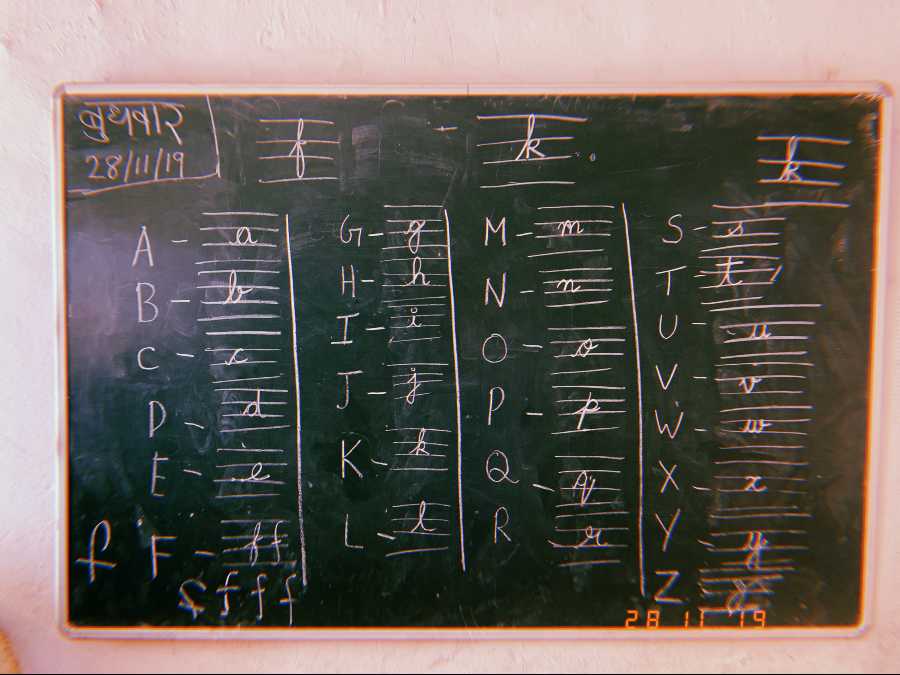 बुधवार
28/11/19
f - k k
A - a G - g M - m S - s
B - b H - h N - n T - t
C - c I - i O - o U - u
D - d J - j P - p V - v
E - e K - k Q - q W - w
f F - f f L - l R - r X - x
f f f f Y - y
Z z
28 11 '19